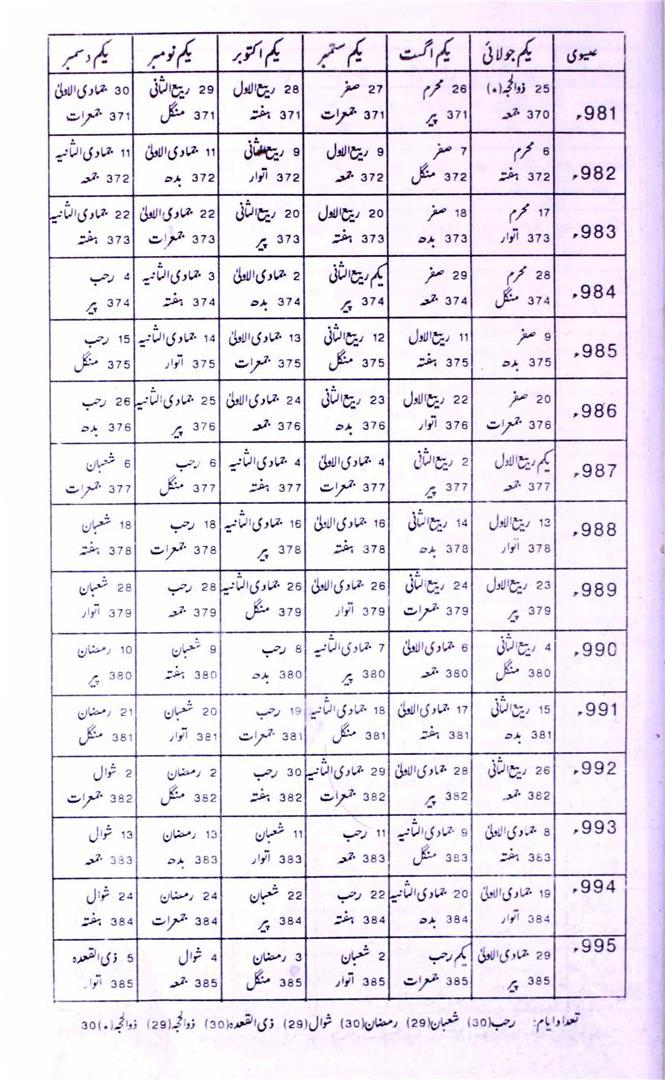 عیسوی یکم جولائی یکم اگست یکم ستمبر یکم اکتوبر یکم نومبر یکم دسمبر
981ء 25 ذوالحجہ(۰) 26 محرم 27 صفر 28 ربیع الاول 29 ربیع الثانی 30 جمادی الاولیٰ
370 جمعہ 371 پیر 371 جمعرات 371 ہفتہ 371 منگل 371 جمعرات
982ء 6 محرم 7 صفر 9 ربیع الاول 9 ربیع الثانی 11 جمادی الاولیٰ 11 جمادی الثانیہ
372 ہفتہ 372 منگل 372 جمعہ 372 اتوار 372 بدھ 372 جمعہ
983ء 17 محرم 18 صفر 20 ربیع الاول 20 ربیع الثانی 22 جمادی الاولیٰ 22 جمادی الثانیہ
373 اتوار 373 بدھ 373 ہفتہ 373 پیر 373 جمعرات 373 ہفتہ
984ء 28 محرم 29 صفر یکم ربیع الثانی 2 جمادی الاولیٰ 3 جمادی الثانیہ 4 رجب
374 منگل 374 جمعہ 374 پیر 374 بدھ 374 ہفتہ 374 پیر
985ء 9 صفر 11 ربیع الاول 12 ربیع الثانی 13 جمادی الاولیٰ 14 جمادی الثانیہ 15 رجب
375 بدھ 375 ہفتہ 375 منگل 375 جمعرات 375 اتوار 375 منگل
986ء 20 صفر 22 ربیع الاول 23 ربیع الثانی 24 جمادی الاولیٰ 25 جمادی الثانیہ 26 رجب
376 جمعرات 376 اتوار 376 بدھ 376 جمعہ 376 پیر 376 بدھ
987ء یکم ربیع الاول 2 ربیع الثانی 4 جمادی الاولیٰ 4 جمادی الثانیہ 6 رجب 6 شعبان
377 جمعہ 377 پیر 377 جمعرات 377 ہفتہ 377 منگل 377 جمعرات
988ء 13 ربیع الاول 14 ربیع الثانی 16 جمادی الاولیٰ 16 جمادی الثانیہ 18 رجب 18 شعبان
378 اتوار 378 بدھ 378 ہفتہ 378 پیر 378 جمعرات 378 ہفتہ
989ء 23 ربیع الاول 24 ربیع الثانی 26 جمادی الاولیٰ 26 جمادی الثانیہ 28 رجب 28 شعبان
379 پیر 379 جمعرات 379 اتوار 379 منگل 379 جمعہ 379 اتوار
990ء 4 ربیع الثانی 6 جمادی الاولیٰ 7 جمادی الثانیہ 8 رجب 9 شعبان 10 رمضان
380 منگل 380 جمعہ 380 پیر 380 بدھ 380 ہفتہ 380 پیر
991ء 15 ربیع الثانی 17 جمادی الاولیٰ 18 جمادی الثانیہ 19 رجب 20 شعبان 21 رمضان
381 بدھ 381 ہفتہ 381 منگل 381 جمعرات 381 اتوار 381 منگل
992ء 26 ربیع الثانی 28 جمادی الاولیٰ 29 جمادی الثانیہ 30 رجب 2 رمضان 2 شوال
382 جمعہ 382 پیر 382 جمعرات 382 ہفتہ 382 منگل 382 جمعرات
993ء 8 جمادی الاولیٰ 9 جمادی الثانیہ 11 رجب 11 شعبان 13 رمضان 13 شوال
383 ہفتہ 383 منگل 383 جمعہ 383 اتوار 383 بدھ 383 جمعہ
994ء 19 جمادی الاولیٰ 20 جمادی الثانیہ 22 رجب 22 شعبان 24 رمضان 24 شوال
384 اتوار 384 بدھ 384 ہفتہ 384 پیر 384 جمعرات 384 ہفتہ
995ء 29 جمادی الاولیٰ یکم رجب 2 شعبان 3 رمضان 4 شوال 5 ذی القعدہ
385 پیر 385 جمعرات 385 اتوار 385 منگل 385 جمعہ 385 اتوار
تعداد ایام: رجب(30) شعبان(29) رمضان(30) شوال(29) ذی القعدہ(30) ذوالحجہ(29) ذوالحجہ(۰)30